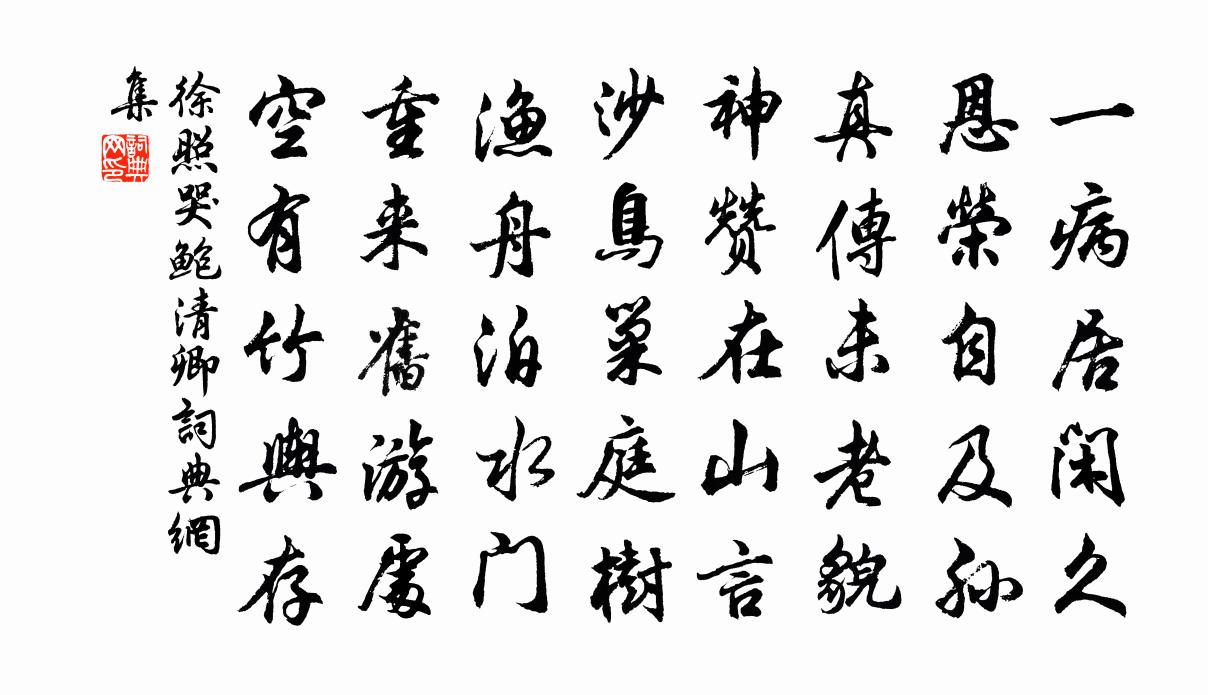 一病居闲久
恩榮自及孙
真傳未老貌
神赞在山言
沙鳥巢庭樹
渔舟泊水门
重来舊游處
空有竹與存
徐照哭鲍清卿詞典網
集
詞典
网印